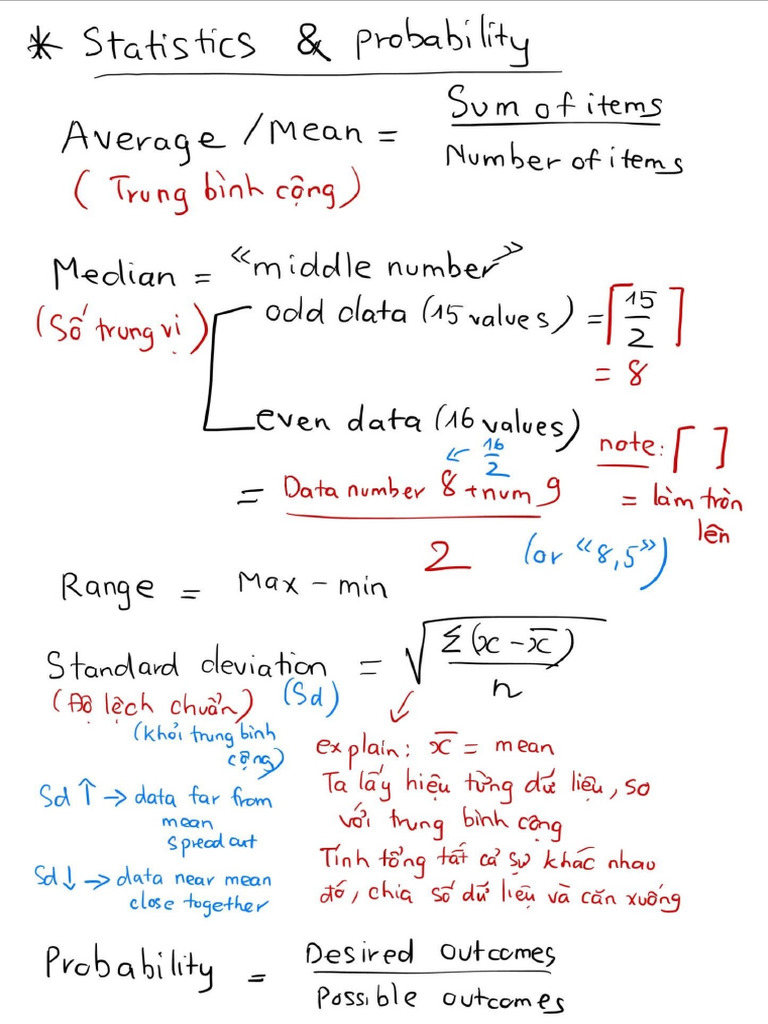 * Statistics & probability
Average / Mean = Sum of items / Number of items
(Trung bình cộng)
Median = "middle number"
(Số trung vị)
odd data (15 values) = ⌈15/2⌉
= 8
even data (16 values)
← 16/2
note: ⌈ ⌉
= làm tròn
lên
= Data number 8 + num 9 / 2
(or "8,5")
Range = Max - min
Standard deviation = √(Σ(x - x̄) / n)
(Độ lệch chuẩn) (Sd)
(khỏi trung bình
cộng)
Sd ↑ → data far from
mean
spread out
Sd ↓ → data near mean
close together
explain: x̄ = mean
Ta lấy hiệu từng dữ liệu, so
với trung bình cộng
Tính tổng tất cả sự khác nhau
đó, chia số dữ liệu và căn xuống
Probability = Desired outcomes / Possible outcomes